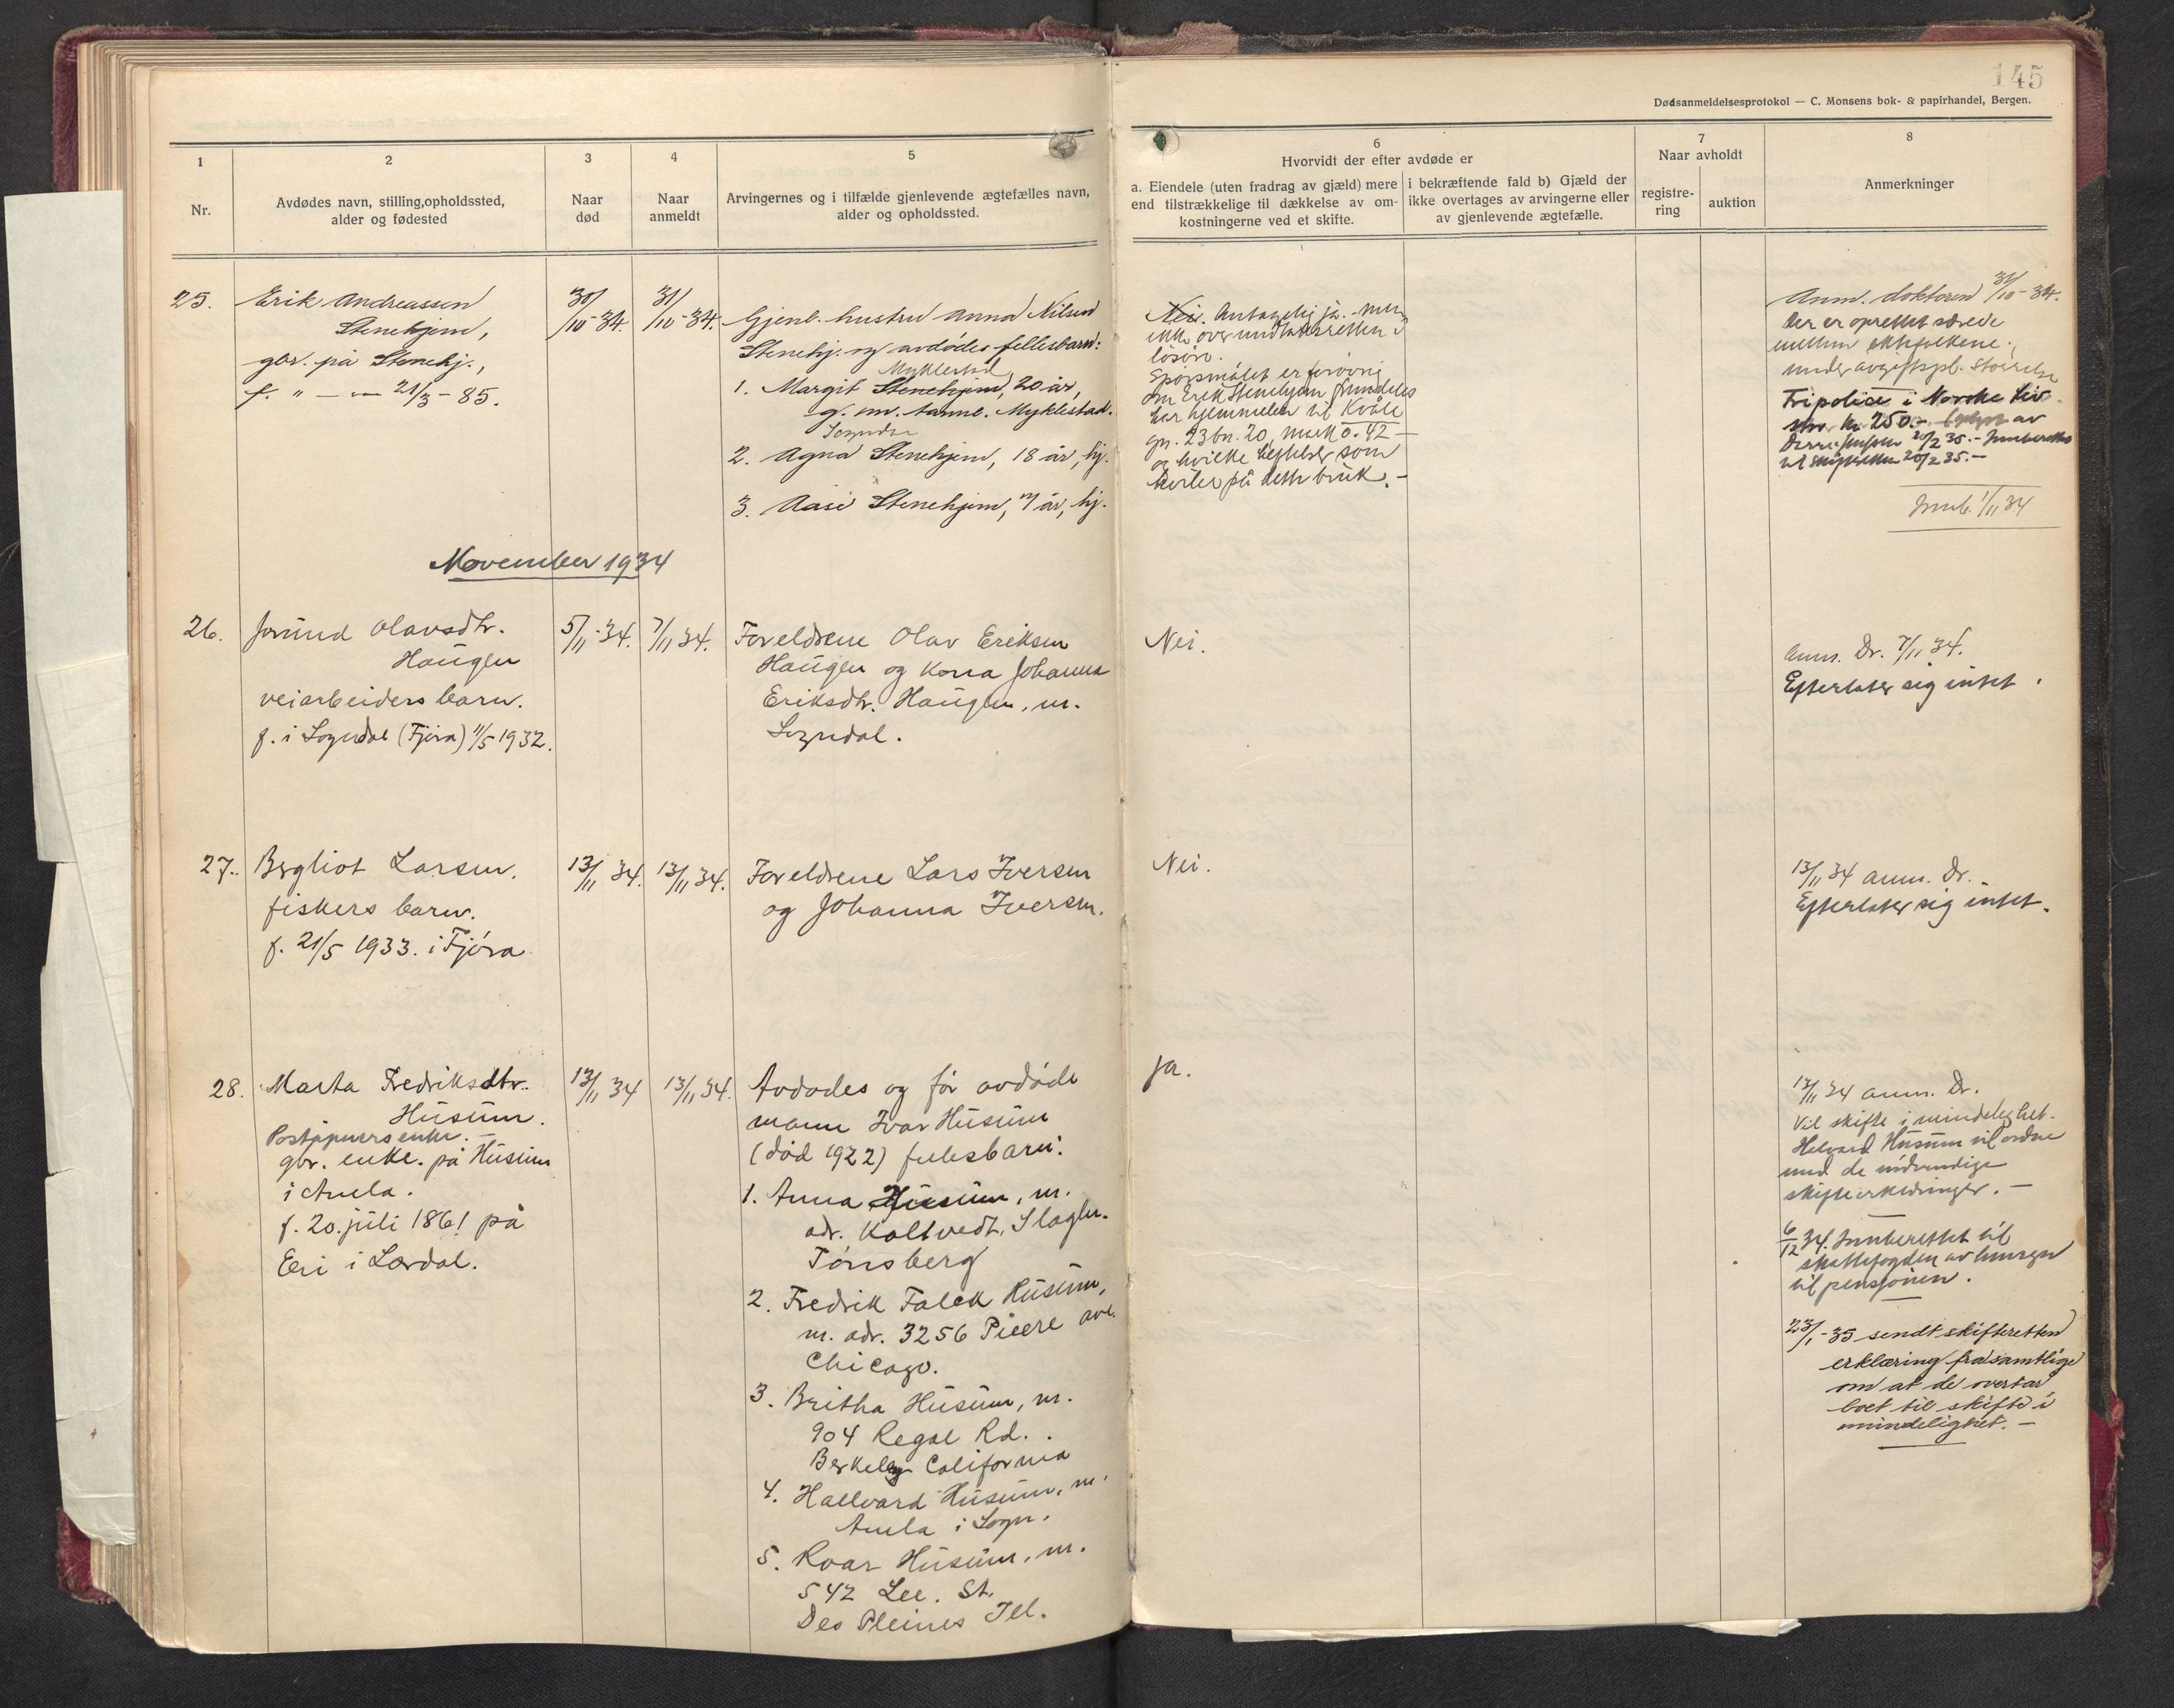 145
Dødsanmeldelsesprotokol — C. Monsens bok- & papirhandel, Bergen.
1
Nr.
2
Avdødes navn, stilling, opholdssted,
alder og fødested
3
Naar
død
4
Naar
anmeldt
5
Arvingernes og i tilfælde gjenlevende ægtefælles navn,
alder og opholdssted.
6
Hvorvidt der efter avdøde er
a. Eiendele (uten fradrag av gjæld) mere
end tilstrækkelige til dækkelse av om-
kostningerne ved et skifte.
i bekræftende fald b) Gjæld der
ikke overtages av arvingerne eller
av gjenlevende ægtefælle.
7
Naar avholdt
registre-
ring
auktion
8
Anmerkninger
25.
Erik Andreassen
Stenehjem,
gbr. på Stenehj.,
f. " — 21/3 - 85.
30/10-34.
31/10-34.
Gjenl. hustru Anna Nilsen
Stenehj. og avdødes fellesbarn:
Myklestad
1. Margit Stenehjem, 20 år,
g. m. Myklestad.
Sogndal
2. Agna Stenehjem, 18 år, hj.
3. Aase Stenehjem, 7 år, hj.
Nei. Antagelig ja. - men
ikke over undtaksretten i
løsøre.
Spørsmålet er forøvrig
om Erik Stenehjem fremdeles
har hjemmelen til Kvåle
gn. 23 bn. 20, mark 0.42 —
og hvilke heftelser som
hviler på dette bruk. -
Anm. doktoren 31/10-34.
Der er oprettet særeie
mellem ektefolkene.
under avgiftspl. Størrelse
Fripolice i Norske Liv
stor kr. 250.- av
20/2 35.- Innberettet
til skifteretten 20/2 35.-
Innb. 1/11 34
November 1934
26.
Jorund Olavsdtr.
Haugen
veiarbeiders barn.
f. i Sogndal (Fjøra) 11/5 1932.
5/11-34.
7/11 34.
Foreldrene Olav Eriksen
Haugen og kona Johanna
Eriksdtr. Haugen, m.
Sogndal.
Nei.
Anm. Dr. 7/11 34.
Efterlater sig intet.
27.
Bergliot Larsen.
fiskers barn.
f. 21/5 1933. i Fjøra
13/11 34.
13/11 34.
Foreldrene Lars Iversen
og Johanna Iversen.
Nei.
13/11 34 anm. Dr.
Efterlater sig intet.
28.
Marta Fredriksdtr.
Husum.
Poståpners enke. —
gbr. enke. på Husum
i Amla.
f. 20. juli 1861 på
Eri i Lærdal.
13/11 34
13/11 34.
Avdødes og før avdøde
mann Ivar Husum
(død 1922) fellesbarn:
1. Anna Husum, m.
adr. Koltvedt, Slagen.
Tønsberg
2. Fredrik Falck Husum,
m. adr. 3256 Pierre ave.
Chicago.
3. Britha Husum, m.
904 Regal Rd.
Berkeley California
4. Hallvard Husum, m.
Amla i Sogn.
5. Roar Husum, m.
542 Lee. St.
Des Pleines Ill.
Ja.
13/11 34 anm. Dr.
Vil skifte i mindelighet.
Halvard Husum vil ordne
med de nødvendige
skifteerklæringer. —
6/12 34. Innberettet til
skattefogden av hensyn
til pensjonen.
23/1-35 sendt skifteretten
erklæring fra samtlige
om at de overtar
boet til skifte i
mindelighet. —